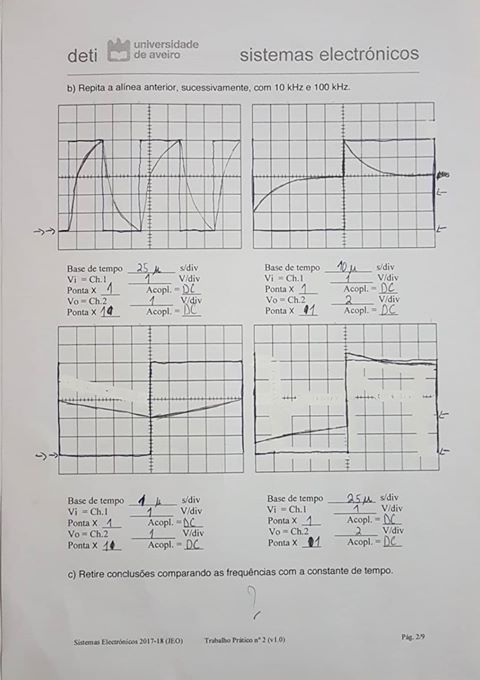 deti universidade de aveiro sistemas electrónicos
b) Repita a alínea anterior, sucessivamente, com 10 kHz e 100 kHz.
Base de tempo 25 µ s/div
Vi = Ch.1 1 V/div
Ponta X 1 Acopl. = DC
Vo = Ch.2 1 V/div
Ponta X 1 Acopl. = DC
Base de tempo 10 µ s/div
Vi = Ch.1 1 V/div
Ponta X 1 Acopl. = DC
Vo = Ch.2 2 V/div
Ponta X 1 Acopl. = DC
Base de tempo 1 µ s/div
Vi = Ch.1 1 V/div
Ponta X 1 Acopl. = DC
Vo = Ch.2 1 V/div
Ponta X Acopl. = DC
Base de tempo 25 µ s/div
Vi = Ch.1 1 V/div
Ponta X 1 Acopl. = DC
Vo = Ch.2 2 V/div
Ponta X 1 Acopl. = DC
c) Retire conclusões comparando as frequências com a constante de tempo.
?
Sistemas Electrónicos 2017-18 (JEO) Trabalho Prático nº 2 (v1.0) Pág. 2/9